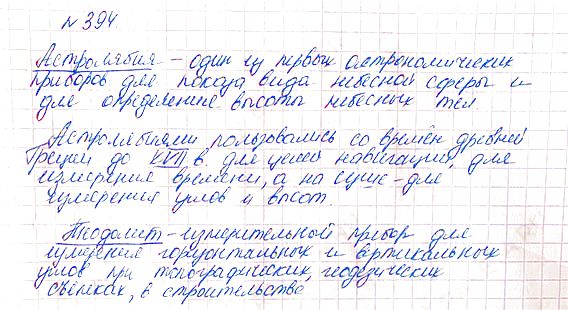 № 394.
Астролябия – один из первых астрономических
приборов для показа вида небесной сферы и
для определения высоты небесных тел.
Астролябиями пользовались со времён древней
Греции до XVII в. для целей навигации, для
измерения времени, а на суше – для
измерения углов и высот.
Теодолит – измерительный прибор для
измерения горизонтальных и вертикальных
углов при топографических, геодезических
съёмках, в строительстве